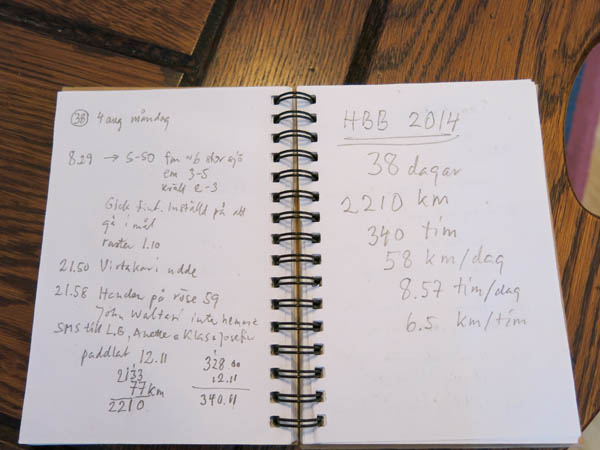 38 4 aug måndag
8.29 → S-SO fm ~6 stor sjö
em 3-5
kväll 2-3
Gick fint. Inställd på att
gå i mål
raster 1.10
21.50 Virtakari udde
21.58 Handen på röse 59
John Waltari inte hemma
SMS till L.B, Anette + Klas + Josefin
paddlat 12.11
2133
77 km
2210
328.00
12.11
340.11
HBB 2014
38 dagar
2210 km
340 tim
58 km/dag
8.57 tim/dag
6.5 km/tim